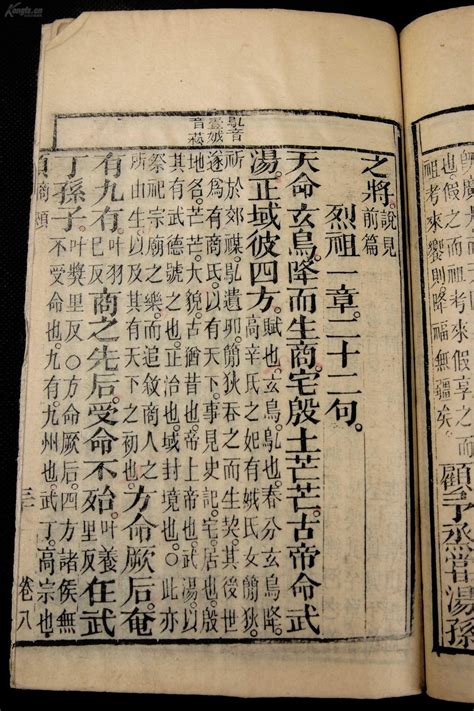 來假享之而
祖考來饗則降福無疆矣
顧予烝嘗湯孫
之將。說見前篇
烈祖一章二十二句。
天命玄鳥降而生商宅殷土芒芒古帝命武
湯正域彼四方。賦也。玄鳥鳦也。春分玄鳥降。高辛氏之妃有娀氏女簡狄
祈於郊禖。鳦遺卵簡狄吞之而生契其後世
遂爲有商氏以有天下。事見史記。宅居也。殷
地名。芒芒大貌。古猶昔也。帝上帝也。武湯以
其有武德號之也。正治也。域封境也。○此亦
祭祀宗廟之樂而追敘商人之
所由生以及其有天下之初也。方命厥后奄
有九有。叶羽己反商之先后受命不殆。叶養里反在武
丁孫子。叶獎里反○方命厥后四方諸侯無不受命也。九有九州也。武丁高宗也
商頌
卷八